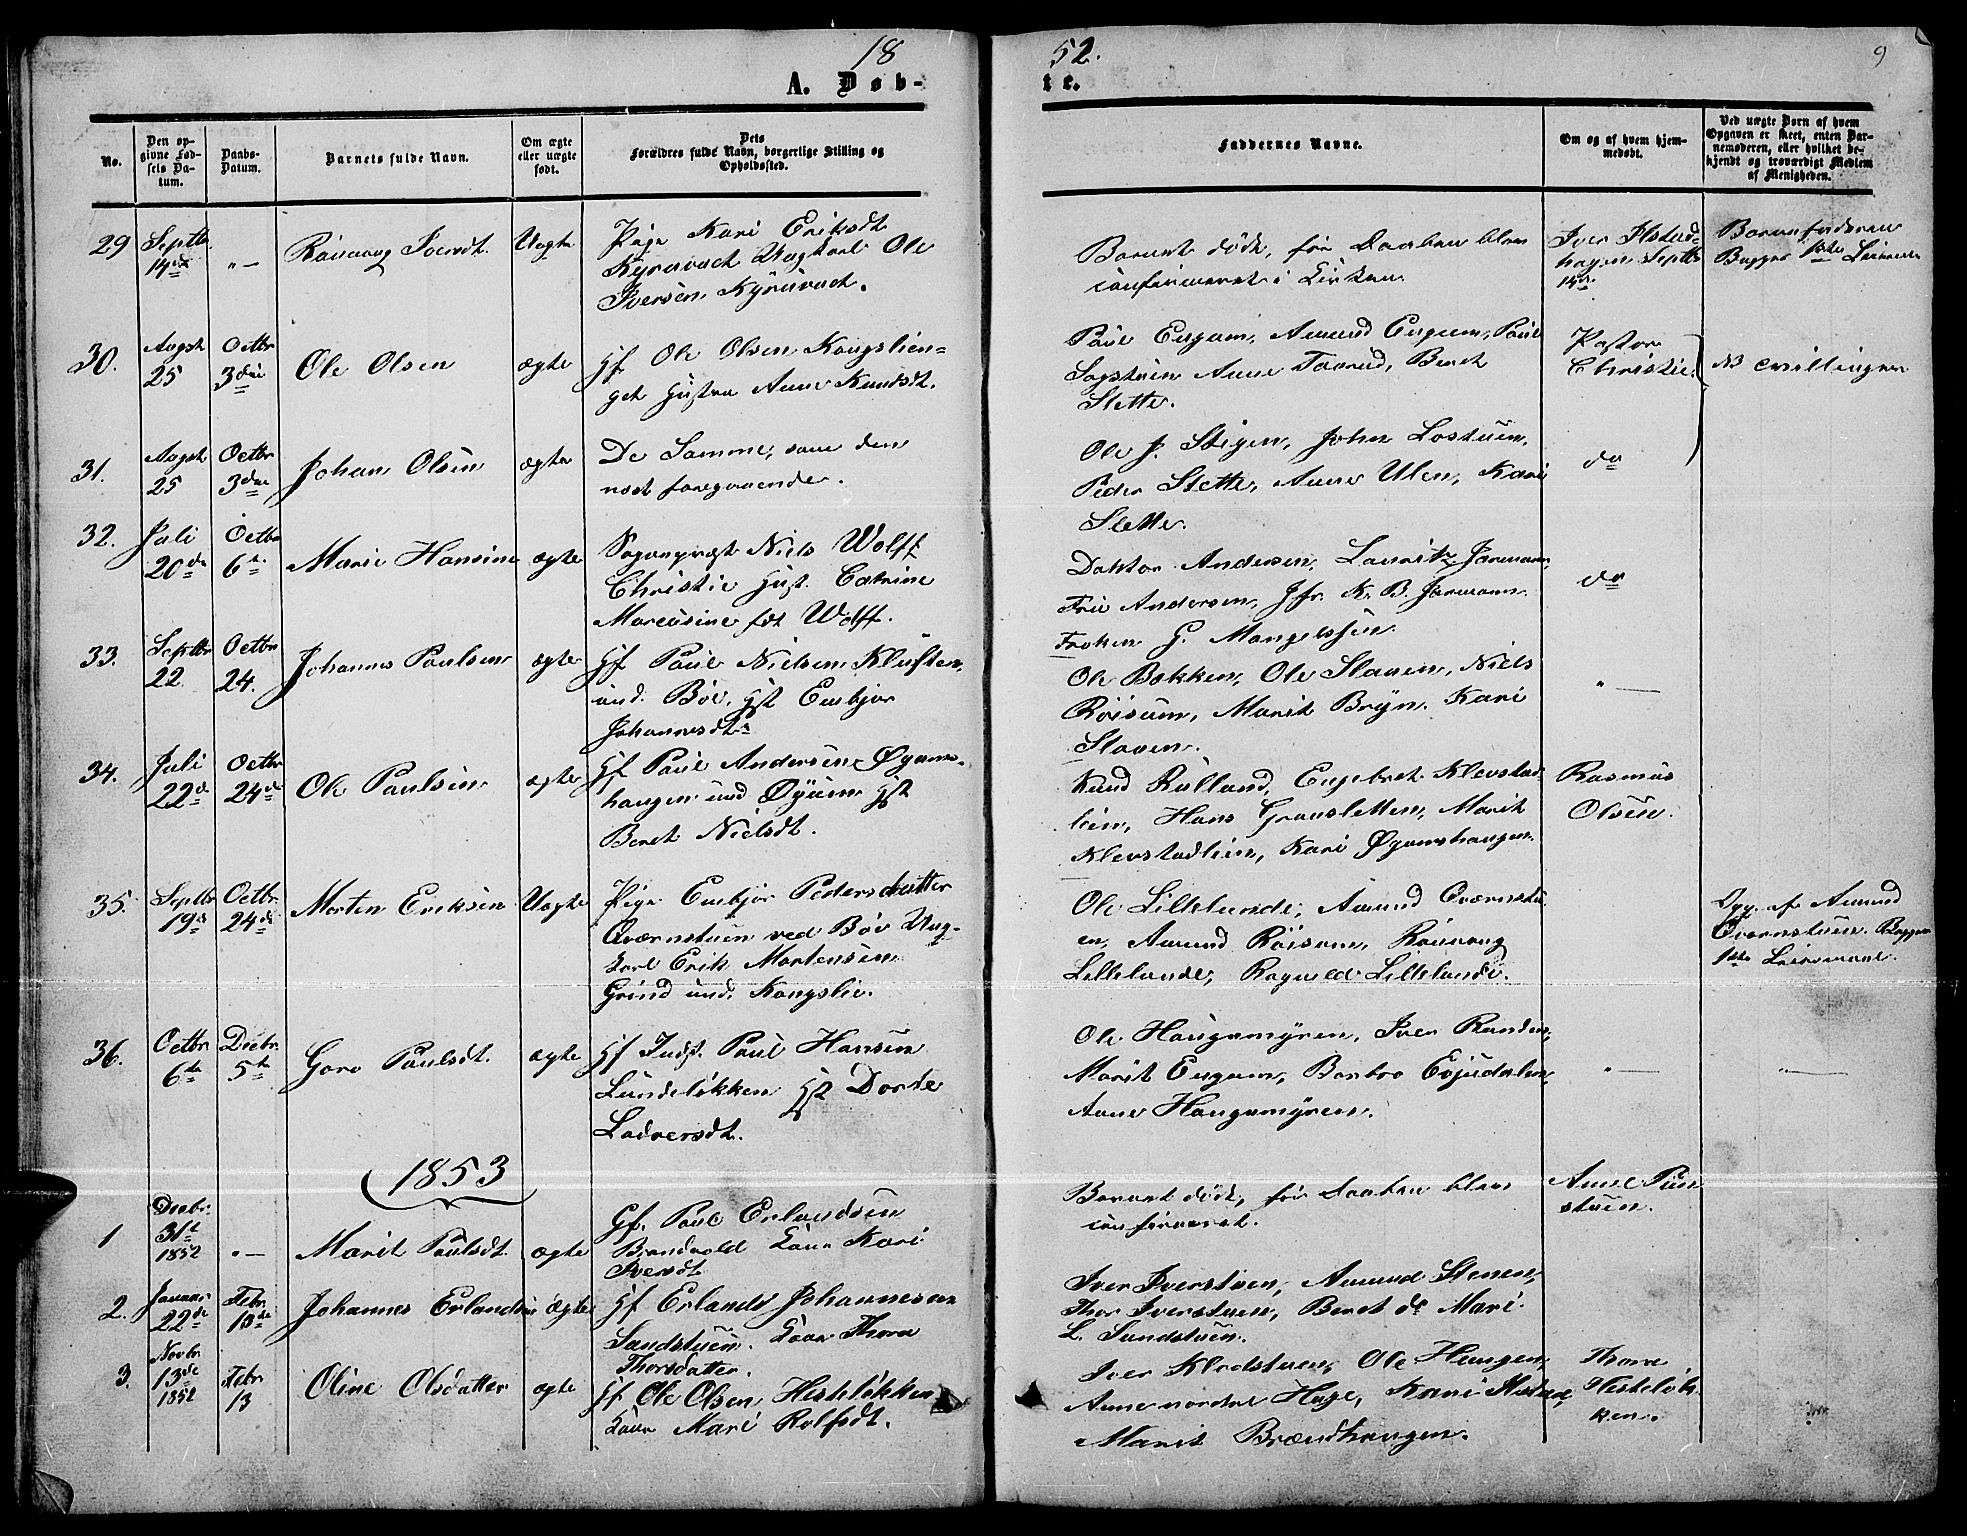 18
52.
9
A. Døb-
te.
No.
Den op-
givne Fød-
sels Da-
tum.
Daabs-
Datum.
Barnets fulde Navn.
Om ægte
eller uægte
født.
Dets
Forældres fulde Navn, borgerlige Stilling og
Opholdssted.
Faddernes Navne.
Om og af hvem hjem-
medøbt.
Ved uægte Børn af hvem
Opgaven er skeet, enten Bar-
nemoderen, eller hvilket be-
kjendt og troværdigt Medlem
af Menigheden.
29
Septbr
14de
"—
Rønnaug Iversdt.
Uægte
Pige Kari Eriksdt
Ungkarl Ole
Iversen
Barnet døde, før Daaben blev
confirmeret i Kirken
Iver Ilstad-
hagen Septbr
14de
Barnefaderen
Begges 1ste Leierm
30.
Augst
25
Octbr
3die
Ole Olsen
ægte
Gf Ole Olsen Kongslien-
get Hustru Anne Knudsdt.
Paul Engum, Amund Engum, Paul
Sagstuen Anne Taarud, Beret
Slette.
Pastor
Christie
NB Tvillinger
31.
Augst
25
Octbr
3die
Johan Olsen
ægte
De Samme, som den
næst foregaaende.
Ole J. Stigen, John Lostuen,
Peder Slette, Anne Ulen, Kari
Slette.
do
32.
Juli
20de
Octbr
6te
Marie Hansine
ægte
Sogneprest Niels Wolff
Christie Hust. Catrine
Marcusine fdt Wolff.
Doktor Andersen, Lauritz Jarmann,
Frue Andersen, Jfr. K. B. Jarmann.
Frøken G. Mangelssen.
do
33.
Septbr
22
Octbr
24.
Johannes Paulsen
ægte
Gf Paul Nielsen Kluften
und. Böe, Hst Embjør
Johannesdt
Ole Bakken, Ole Slaaen, Niels
Röisum, Marit Bryn. Kari
Slaaen.
"—
34.
Juli
22de
Octbr
24de
Ole Paulsen
ægte
Gf Paul Andersen Øyums-
haugen und Øyum Hst
Beret Nielsdt.
Knud Rulland, Engebret Klevstad
lien, Hans Gransletten, Marit
Klevstadlien, Kari Øyumshaugen
Rasmus
Olsen.
35.
Septbr
19de
Octbr
24de
Morten Eriksen
Uægte
Pige Embjør Pedersdatter
Qværnstuen ved Böe Ung-
karl Erik Mortensen
Grind und. Kongslie.
Ole Lillelunde, Amund Qværnstu
en, Amund Röisum, Rönnaug
Lillelunde, Ragnild Lillelunde.
Opg. af Amund
Qværnstuen. Begges
1ste Leiermaal.
36.
Octbr
6te
Decbr.
5te
Goro Paulsdt.
ægte
Gf Inds. Paul Hansen
Lundeløkken Hst Dorte
Ladversdt.
Ole Haugamyren, Iver Randen,
Marit Engum, Barbro Evjudalen,
Anne Haugamyren.
"—
"—
1853
1
Decbr.
31te
1852
"—
Marit Paulsdt.
ægte
Gf. Paul Erlandsen
Brandvold Kone Kari
Iversdt
Barnet døde, før Daaben blev
confirmeret.
Anne Pun
stuen.
2.
Januar
22de
Febr.
13de
Johannes Erlandsen
ægte
Gf Erlands Johannesen
Sandstuen. Kone Thora
Thorsdatter.
Iver Iverstuen, Amund Stenen,
Thor Iverstuen, Beret do Mari
L. Sundstuen.
3.
Novbr.
13de
1852
Febr
13
Oline Olsdatter
ægte
Gf Ole Olsen Hesteløkken
Kone Mari Rolfsdt.
Iver Kladstuen, Ole Haugen,
Anne nordre Hage, Kari Ilstad,
Marit Brændhaugen.
Thore
Hesteløk-
ken.